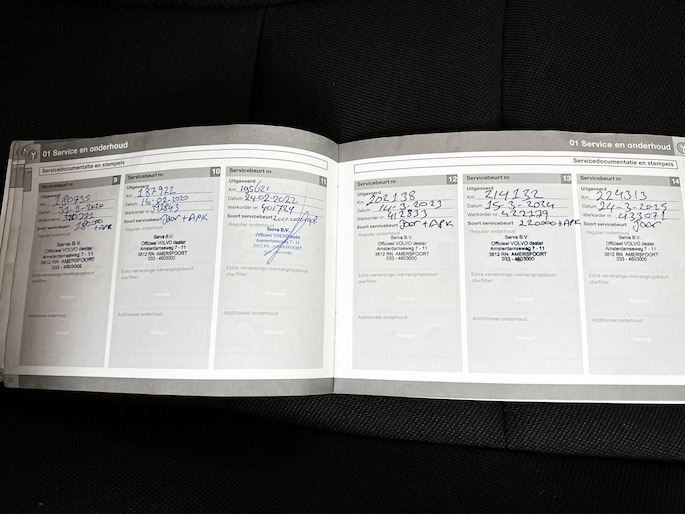 01 Service en onderhoud
Servicedocumentatie en stempels
Servicebeurt nr. 9
Uitgevoerd
Km 180735
Datum 31-1-2020
Werkorder nr.
Soort servicebeurt + APK
Regulier onderhoud
Serva B.V.
Officieel VOLVO dealer
Amsterdamseweg 7 - 11
3812 RN AMERSFOORT
033 - 4603000
Extra verversings-/vervangingsbeurt
olie/filter:
Additioneel onderhoud
Servicebeurt nr. 10
Uitgevoerd
Km 187922
Datum
Werkorder nr.
Soort servicebeurt Jaar + APK
Regulier onderhoud
Serva B.V.
Officieel VOLVO dealer
Amsterdamseweg 7 - 11
3812 RN AMERSFOORT
033 - 4603000
Extra verversings-/vervangingsbeurt
olie/filter:
Additioneel onderhoud
Servicebeurt nr. 11
Uitgevoerd
Km 195621
Datum 24-02-2022
Werkorder nr. 401724
Soort servicebeurt
Regulier onderhoud
Serva B.V.
Officieel VOLVO dealer
Amsterdamseweg 7 - 11
3812 RN AMERSFOORT
Extra verversings-/vervangingsbeurt
olie/filter:
Additioneel onderhoud
01 Service en onderhoud
Servicedocumentatie en stempels
Servicebeurt nr. 12
Uitgevoerd
Km 202138
Datum 14-3-2023
Werkorder nr. 412833
Soort servicebeurt Jaar + APK
Regulier onderhoud
Serva B.V.
Officieel VOLVO dealer
Amsterdamseweg 7 - 11
3812 RN AMERSFOORT
033 - 4603000
Extra verversings-/vervangingsbeurt
olie/filter:
Additioneel onderhoud
Servicebeurt nr. 13
Uitgevoerd
Km 214132
Datum 15-3-2024
Werkorder nr. 422179
Soort servicebeurt 220000 + APK
Regulier onderhoud
Serva B.V.
Officieel VOLVO dealer
Amsterdamseweg 7 - 11
3812 RN AMERSFOORT
033 - 4603000
Extra verversings-/vervangingsbeurt
olie/filter:
Additioneel onderhoud
Servicebeurt nr. 14
Uitgevoerd
Km 224313
Datum 24-3-2025
Werkorder nr. 433071
Soort servicebeurt Jaar
Regulier onderhoud
Serva B.V.
Officieel VOLVO dealer
Amsterdamseweg 7 - 11
3812 RN AMERSFOORT
033 - 4603000
Extra verversings-/vervangingsbeurt
olie/filter:
Additioneel onderhoud